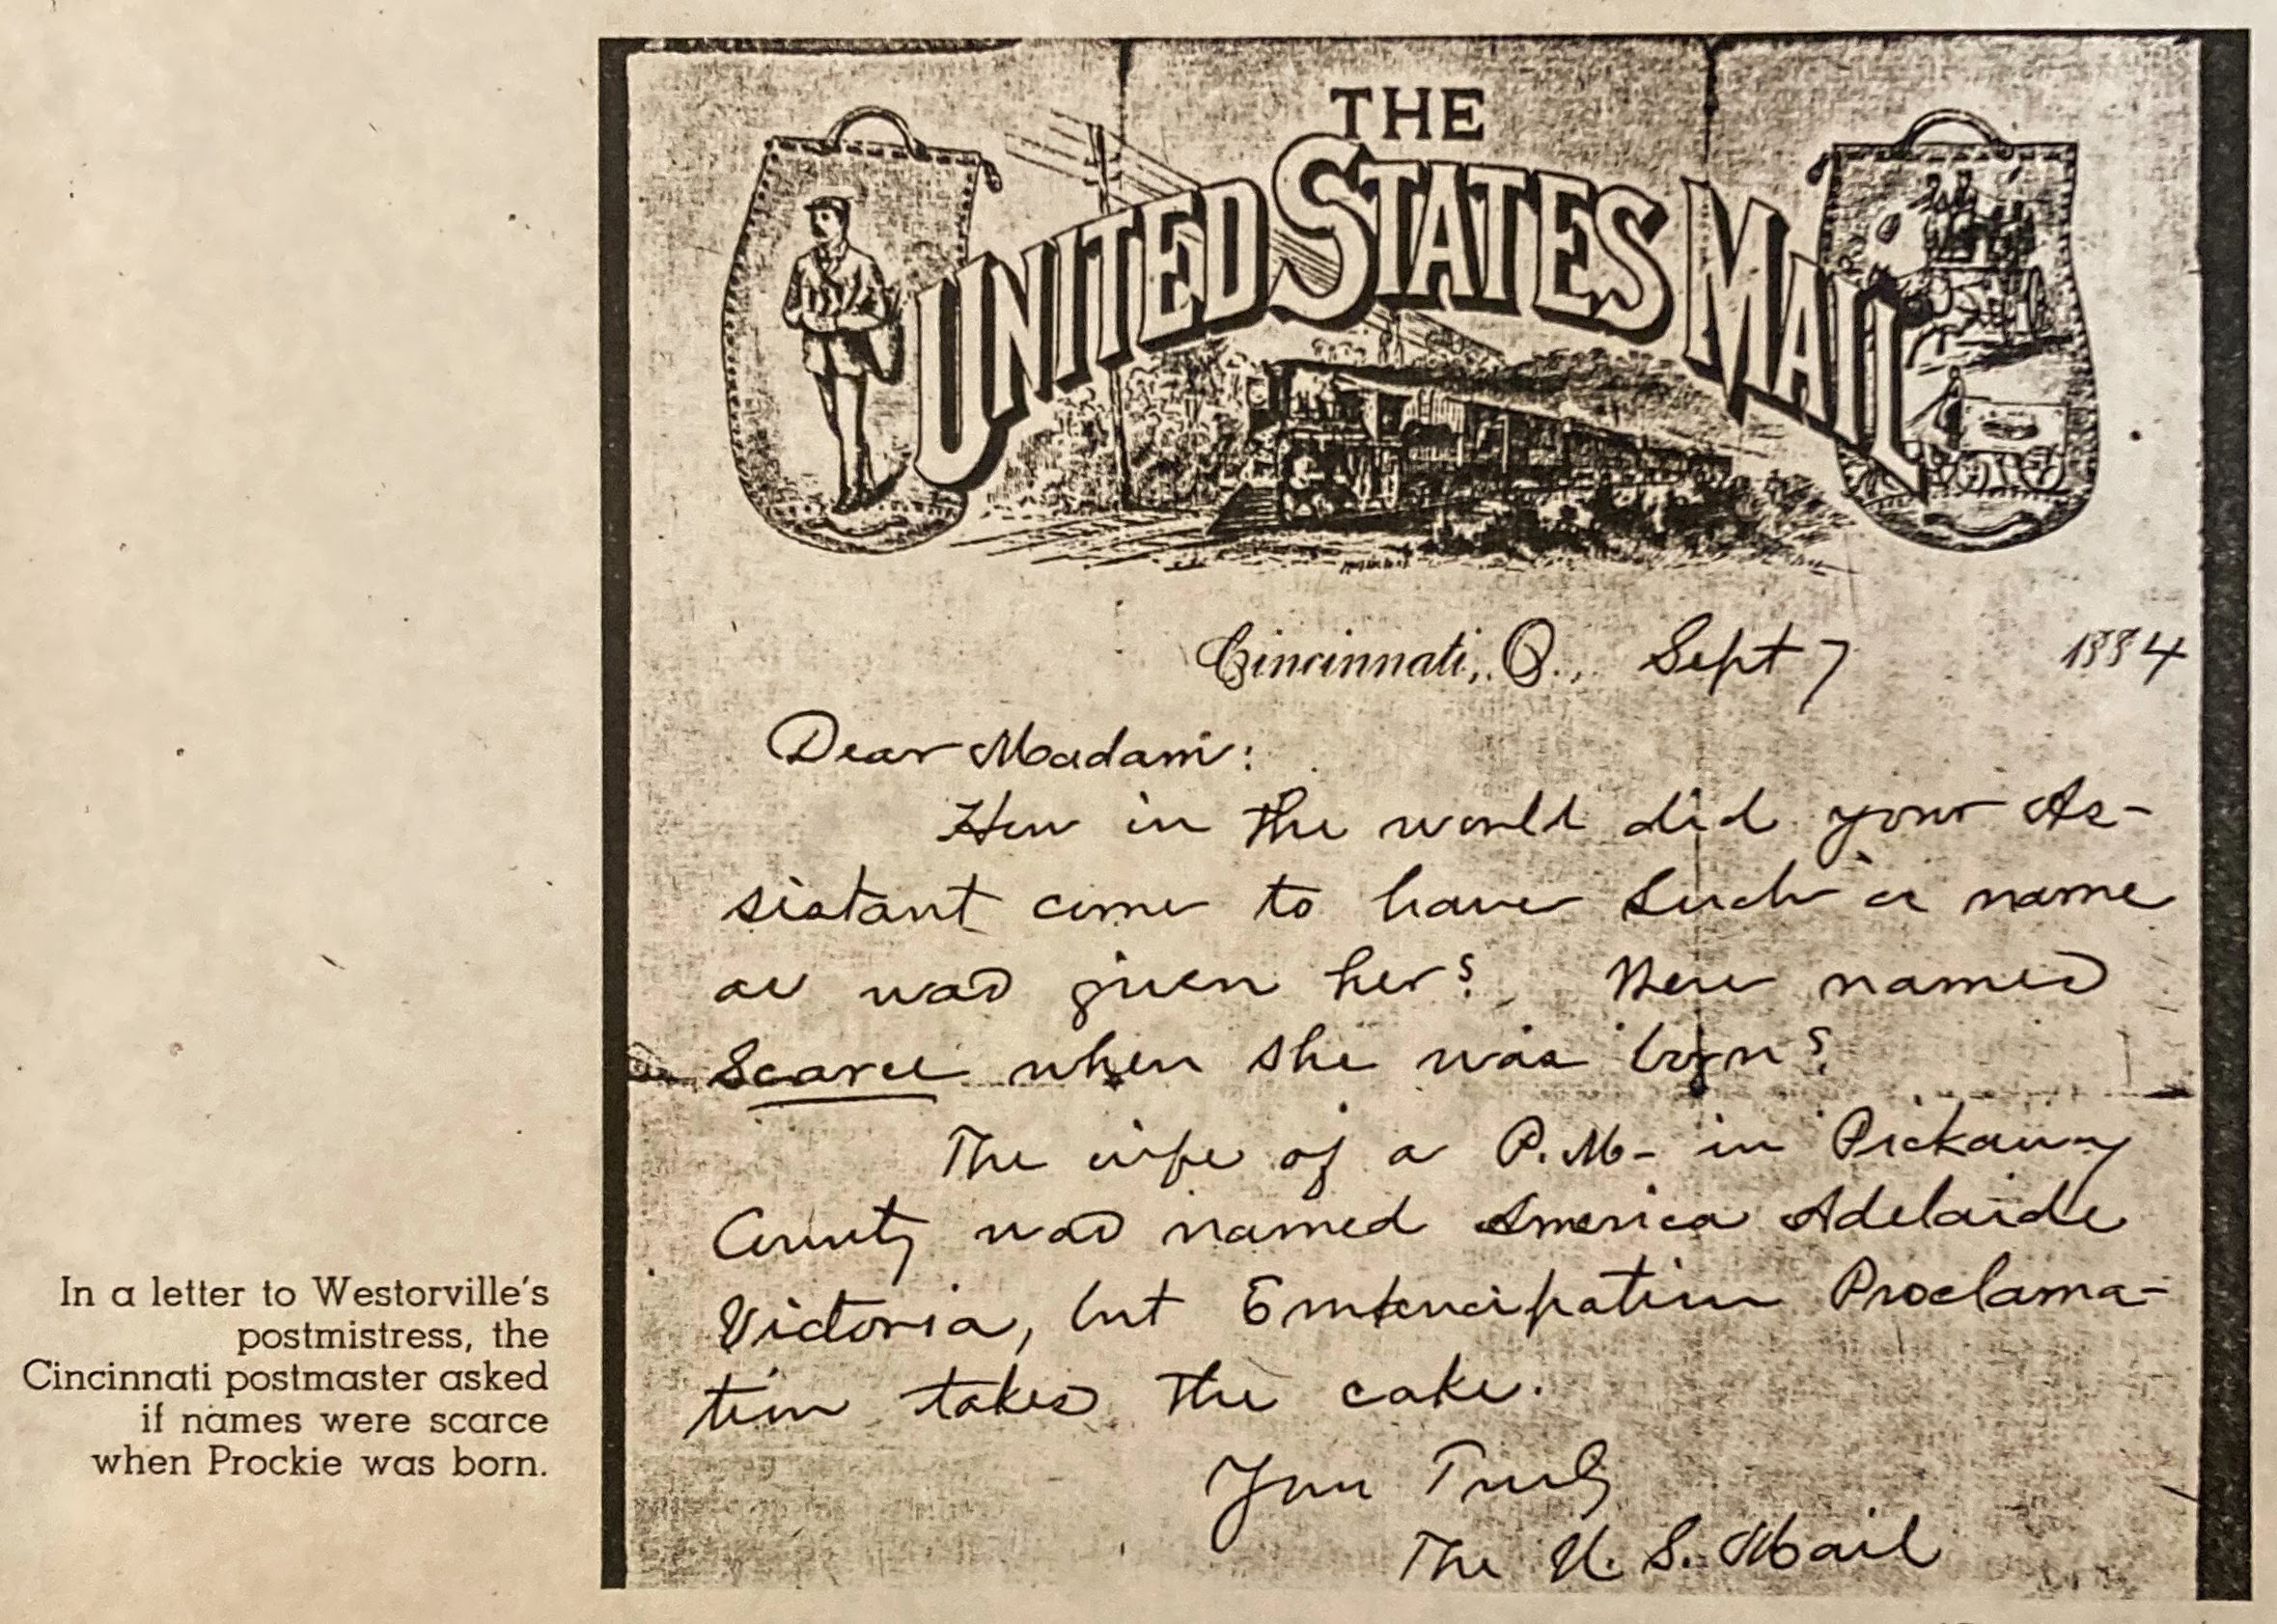 THE
UNITED STATES MAIL
Cincinnati, O., Sept 7 1884
Dear Madam:
How in the world did your As-
sistant come to have such a name
as was given her? Were names
Scarce when she was born?
The wife of a P.M. in Pickaway
County was named America Adelaide
Victoria, but Emancipation Proclama-
tion takes the cake.
Your Truly
The U. S. Mail
In a letter to Westorville's
postmistress, the
Cincinnati postmaster asked
if names were scarce
when Prockie was born.